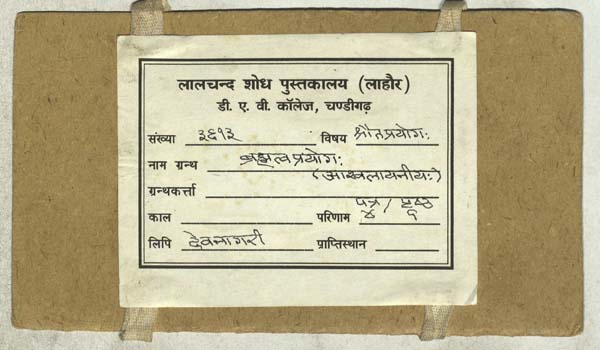 लालचन्द शोध पुस्तकालय (लाहौर)
डी. ए. वी. कॉलेज, चण्डीगढ़
संख्या ३६१३ विषय श्रौतप्रयोगः
नाम ग्रन्थ ब्रह्मत्वप्रयोगः
(आश्वलायनीयः)
ग्रन्थकर्त्ता
पत्र / पृष्ठ
काल परिणाम ४
लिपि देवनागरी प्राप्तिस्थान